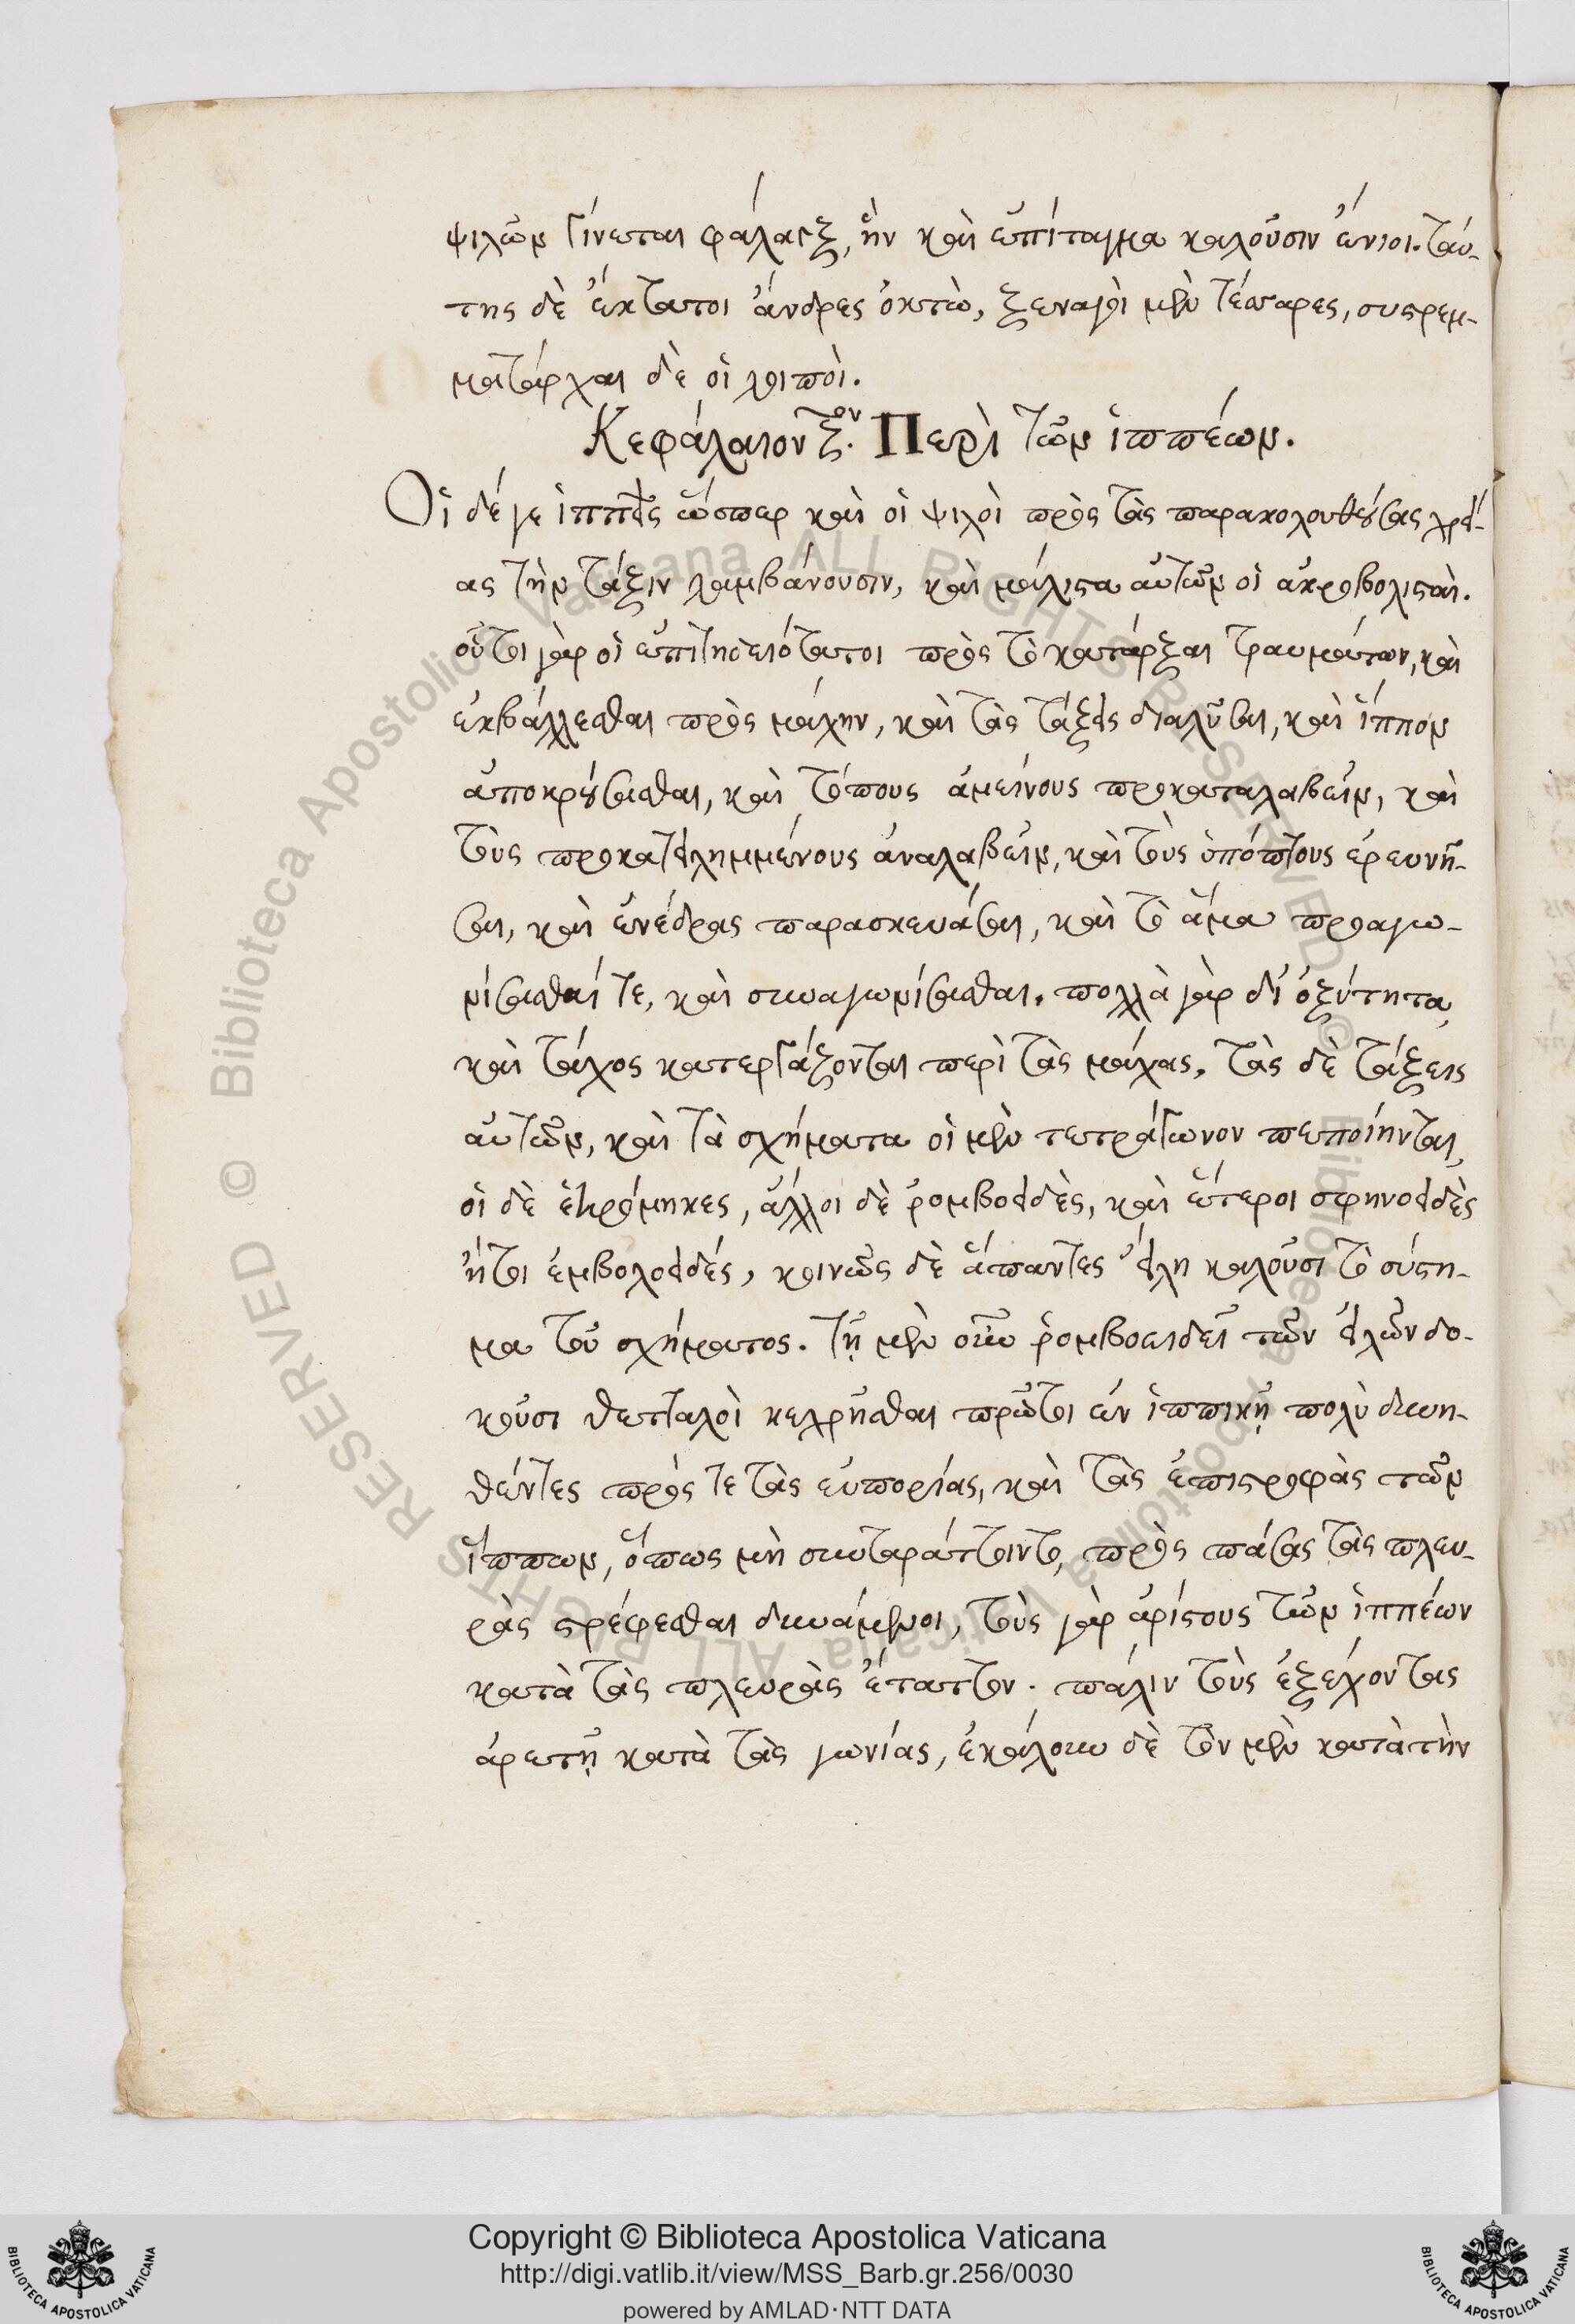 ψιλῶν γίνεται φάλαγξ, ἣν καὶ ἐπίταγμα καλοῦσιν ἔνιοι. ταύ-
της δὲ ἔκτατοι ἄνδρες ὀκτὼ, ξεναγοὶ μὲν τέσσαρες, συστρεμ-
ματάρχαι δὲ οἱ λοιποὶ.
Κεφάλαιον ξον. Περὶ τῶν ἱππέων.
Οἱ δέ γε ἱππεῖς ὥσπερ καὶ οἱ ψιλοὶ πρὸς τὰς παρακολουθούσας χρεί-
ας τὴν τάξιν λαμβάνουσιν, καὶ μάλιστα αὐτῶν οἱ ἀκροβολισταὶ.
οὗτοι γὰρ οἱ ἐπιτηδειότατοι πρὸς τὸ κατάρξαι τραυμάτων, καὶ
ἐκβάλλεσθαι πρὸς μάχην, καὶ τὰς τάξεις διαλῦσαι, καὶ ἵππον
ἀποκρούσασθαι, καὶ τόπους ἀμείνους προκαταλαβεῖν, καὶ
τοὺς προκατειλημμένους ἀναλαβεῖν, καὶ τοὺς ὑπόπτους ἐρευνῆ-
σαι, καὶ ἐνέδρας παρασκευάσαι, καὶ τὸ ἅμα προαγω-
νίσασθαί τε, καὶ συναγωνίσασθαι. πολλὰ γὰρ δι' ὀξύτητα,
καὶ τάχος κατεργάζονται περὶ τὰς μάχας, τὰς δὲ τάξεις
αὐτῶν, καὶ τὰ σχήματα οἱ μὲν τετράγωνον πεποίηνται,
οἱ δὲ ἑτερόμηκες, ἄλλοι δὲ ῥομβοειδὲς, καὶ ἕτεροι σφηνοειδὲς
ἤτοι ἐμβολοειδές, κοινῶς δὲ ἅπαντες εἴλη καλοῦσι τὸ σύστη-
μα τοῦ σχήματος. τῇ μὲν οὖν ῥομβοειδεῖ τῶν εἰλῶν δο-
κοῦσι θετταλοὶ κεχρῆσθαι πρῶτοι ἐν ἱππικῇ πολὺ δυνη-
θέντες πρός τε τὰς εὐπορίας, καὶ τὰς ἐπιστροφὰς τῶν
ἵππων, ὅπως μὴ συνταράττοιντο, πρὸς πάσας τὰς πλευ-
ρὰς στρέφεσθαι δυνάμενοι, τοὺς γὰρ ἀρίστους τῶν ἱππέων
κατὰ τὰς πλευρὰς ἔταττον. πάλιν τοὺς ἐξέχοντας
ἀρετῇ κατὰ τὰς γωνίας, ἐκάλουν δὲ τὸν μὲν κατὰ τὴν
© Biblioteca Apostolica Vaticana ALL RIGHTS RESERVED
© Biblioteca Apostolica Vaticana ALL RIGHTS RESERVED
Copyright © Biblioteca Apostolica Vaticana
http://digi.vatlib.it/view/MSS_Barb.gr.256/0030
powered by AMLAD·NTT DATA
BIBLIOTECA APOSTOLICA VATICANA
BIBLIOTECA APOSTOLICA VATICANA